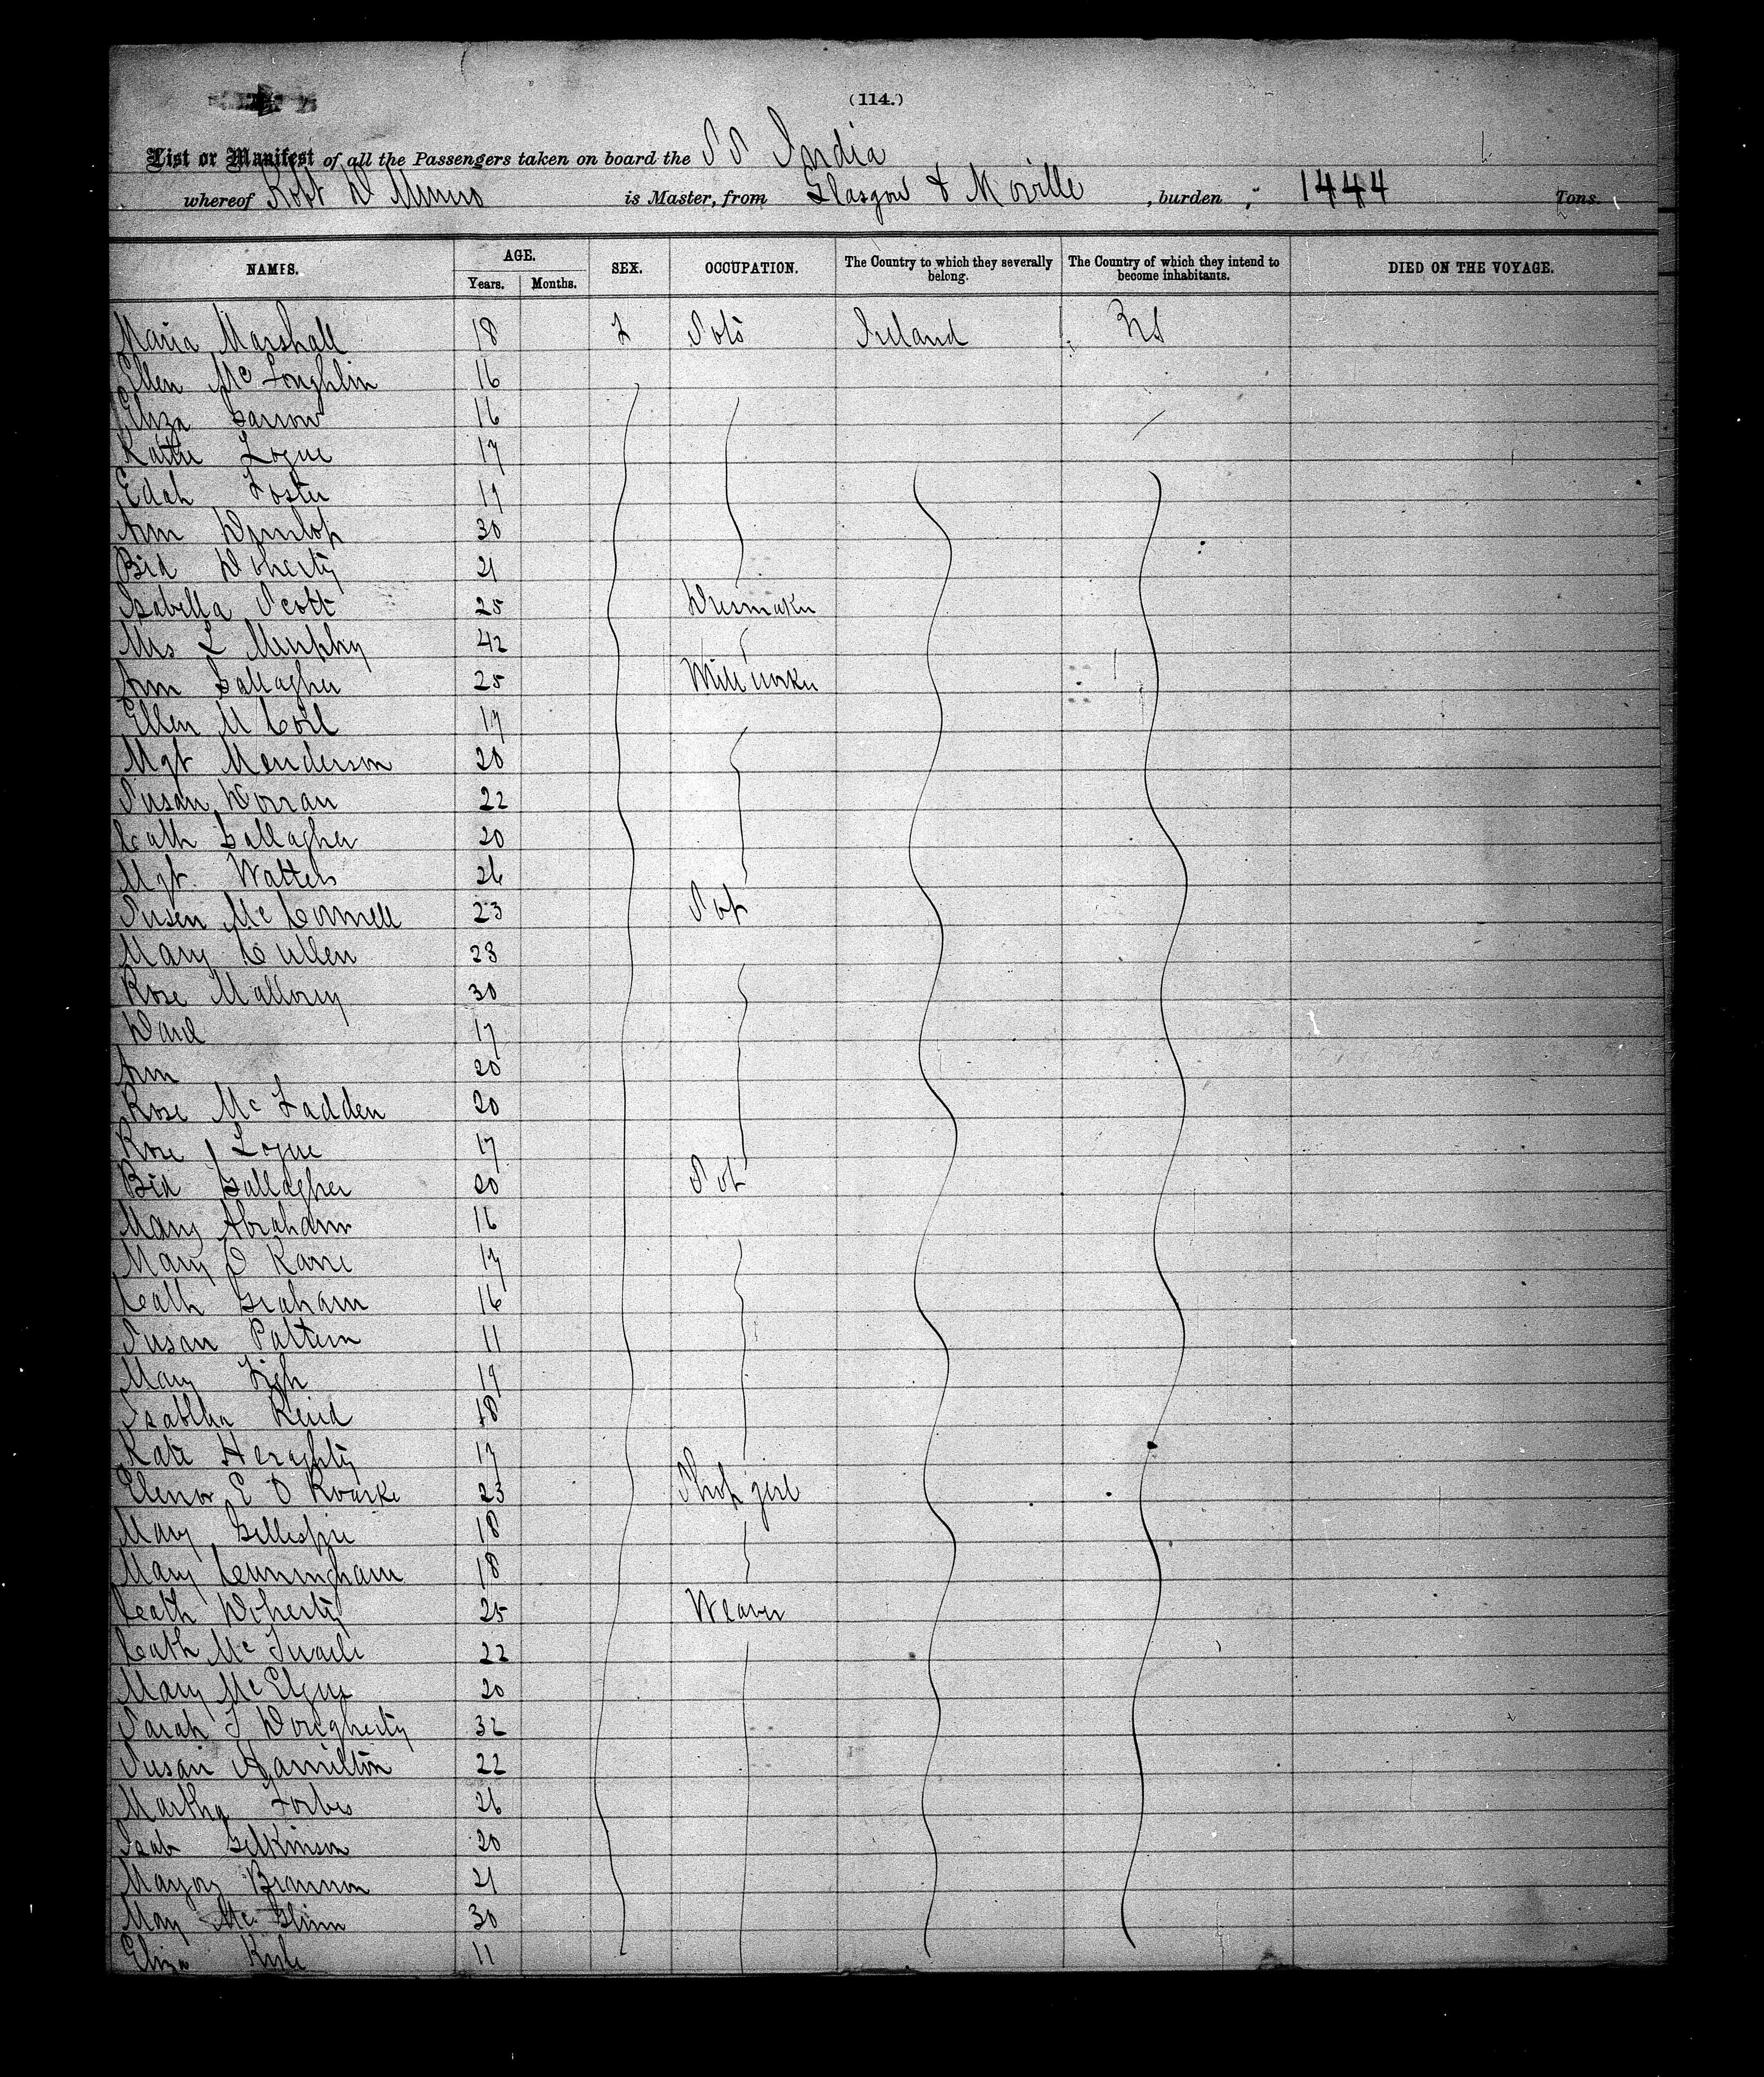 (114.)
List or Manifest of all the Passengers taken on board the SS India
whereof Robt D Munro is Master, from Glasgow & Moville, burden 1444 Tons.
NAMES. AGE. SEX. OCCUPATION. The Country to which they severally belong. The Country of which they intend to become inhabitants. DIED ON THE VOYAGE.
Years. Months.
Maria Marshall 18 F Ireland
Ellen Mc Loughlin 16
Eliza 16
Katie Logue 17
Edah Foster 19
Ann Dunlop 30
Bid Doherty 21
Isabella Scott 25 Dresmaker
Mrs L Murphy 42
Ann Gallagher 25 Mill worker
Ellen M Coil 17
Mgt Menderson 20
Susan Dorran 22
Cath Gallagher 20
Mgt Watters 26
Susen Mc Connell 23
Mary Cullen 23
Rose Mallorey 30
Ward 17
Ann 20
Rose Mc Fadden 20
Rose Logue 17
Bid Gallagher 20
Mary Abraham 16
Mary O Kane 17
Cath Graham 16
Susan Pattern 11
Mary 19
Isablla Reid 18
Kate Heraghty 17
Elenor E O Rourke 23 Shop girl
Mary Gillespie 18
Mary Cunningham 18
Cath Doherty 25 Weaver
Cath Mc 22
Mary Mc 20
Sarah J Dougherty 32
Susan Hamilton 22
Martha Forbes 26
Isab Gilkinson 20
Marjory Brannon 21
May Mc Glinn 30
Eliza 11